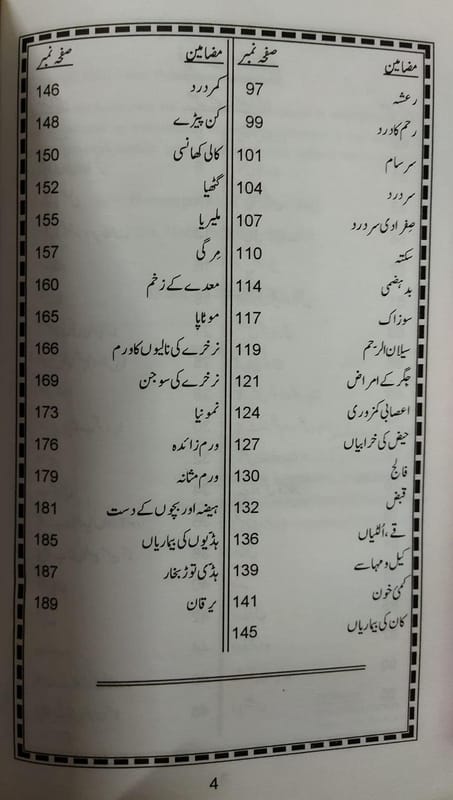 مضامین صفحہ نمبر
رعشہ 97
رحم کا درد 99
سرسام 101
سردرد 104
صفرادی سردرد 107
سکتہ 110
بدہضمی 114
سوزاک 117
سیلان الرحم 119
جگر کے امراض 121
اعصابی کمزوری 124
حیض کی خرابیاں 127
فالج 130
قبض 132
قے، اُلٹیاں 136
کیل و مہاسے 139
کمئ خون 141
کان کی بیماریاں 145
مضامین صفحہ نمبر
کمردرد 146
کن پیڑے 148
کالی کھانسی 150
گٹھیا 152
ملیریا 155
مِرگی 157
معدے کے زخم 160
موٹاپا 165
نرخرے کی نالیوں کا ورم 166
نرخرے کی سوجن 169
نمونیا 173
ورم زائدہ 176
ورم مثانہ 179
ہیضہ اور بچوں کے دست 181
ہڈیوں کی بیماریاں 185
ہڈی توڑ بخار 187
یرقان 189
4